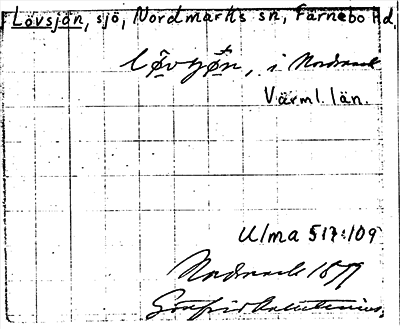 Lövsjön, sjö, Nordmarks sn, Färnebo hd.
i Nordmark
Värml. län.
Ulma 517:109
Nordmark 1879
Gotfrid Kallstenius.